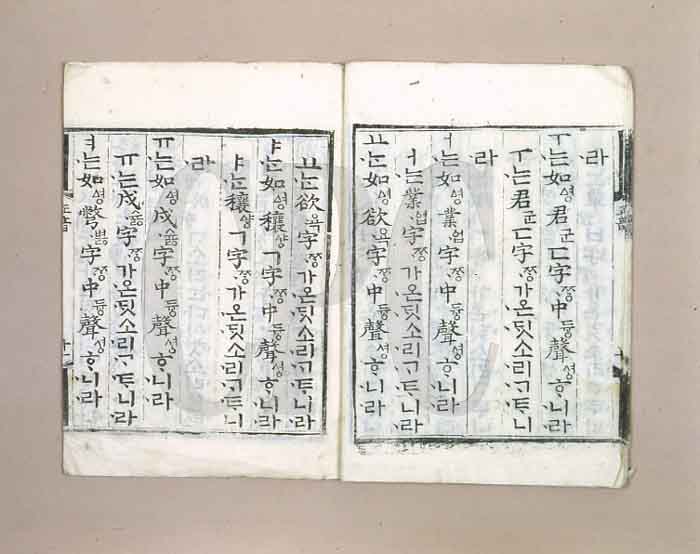 라
ㅜ는如ᅀᅧᆼ君군ㄷ字ᄍᆞᆼ中듕聲셩ᄒᆞ니라
ㅜ는君군ㄷ字ᄍᆞᆼ가온ᄃᆡᆺ소리ᄀᆞᄐᆞ니
라
ㅓ는如ᅀᅧᆼ業업字ᄍᆞᆼ中듕聲셩ᄒᆞ니라
ㅓ는業업字ᄍᆞᆼ가온ᄃᆡᆺ소리ᄀᆞᄐᆞ니라
ㅛᄂᆞᆫ如ᅀᅧᆼ欲욕字ᄍᆞᆼ中듕聲셩ᄒᆞ니라
ㅛᄂᆞᆫ欲욕字ᄍᆞᆼ가온ᄃᆡᆺ소리ᄀᆞᄐᆞ니라
ㅑᄂᆞᆫ如ᅀᅧᆼ穰ᅀᅣᆼㄱ字ᄍᆞᆼ中듕聲셩ᄒᆞ니라
ㅑᄂᆞᆫ穰ᅀᅣᆼㄱ字ᄍᆞᆼ가온ᄃᆡᆺ소리ᄀᆞᄐᆞ니
라
ㅠ는如ᅀᅧᆼ戌슗字ᄍᆞᆼ中듕聲셩ᄒᆞ니라
ㅠ는戌슗字ᄍᆞᆼ가온ᄃᆡᆺ소리ᄀᆞᄐᆞ니라
ㅕ는如ᅀᅧᆼ彆볋字ᄍᆞᆼ中듕聲셩ᄒᆞ니라
正音